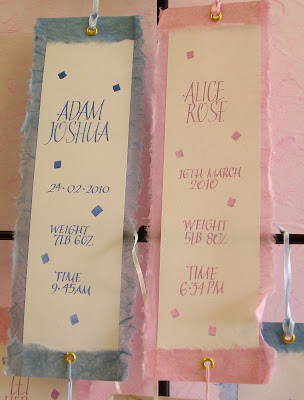 ADAM
JOSHUA
24·02·2010
WEIGHT
7LB 6OZ
TIME
9·45AM
ALICE
ROSE
16TH MARCH
2010
WEIGHT
5LB 8OZ
TIME
6·34PM